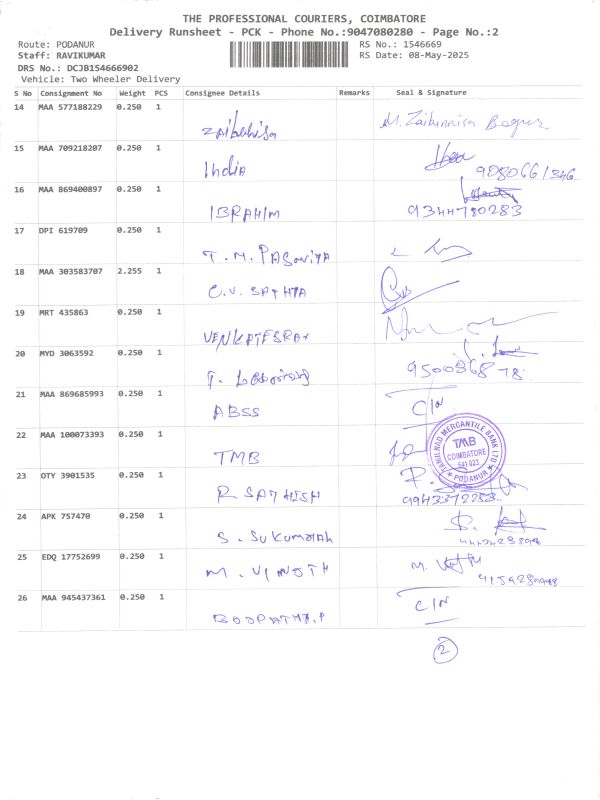 THE PROFESSIONAL COURIERS, COIMBATORE
Delivery Runsheet - PCK - Phone No.:9047080280 - Page No.:2
Route: PODANUR
RS No.: 1546669
Staff: RAVIKUMAR
RS Date: 08-May-2025
DRS No.: DCJB154666902
Vehicle: Two Wheeler Delivery
S No Consignment No Weight PCS Consignee Details Remarks Seal & Signature
14 MAA 577188229 0.250 1
M. Zaibunnisa Begum
15 MAA 709218207 0.250 1
India
16 MAA 869400897 0.250 1
IBRAHIM 9344780283
17 DPI 619709 0.250 1
T. M.
18 MAA 303583707 2.255 1
C.V. SATHYA
19 MRT 435863 0.250 1
20 MYD 3063592 0.250 1
T.
21 MAA 869685993 0.250 1
ABSS
22 MAA 100073393 0.250 1
TMB
TAMILNAD MERCANTILE BANK LTD
TMB
COIMBATORE
PODANUR
23 OTY 3901535 0.250 1
R SATHISH
24 APK 757470 0.250 1
S. SUKUMARAN S.
25 EDQ 17752699 0.250 1
M. VINOTH M.
26 MAA 945437361 0.250 1
BOOPATHY.P
2